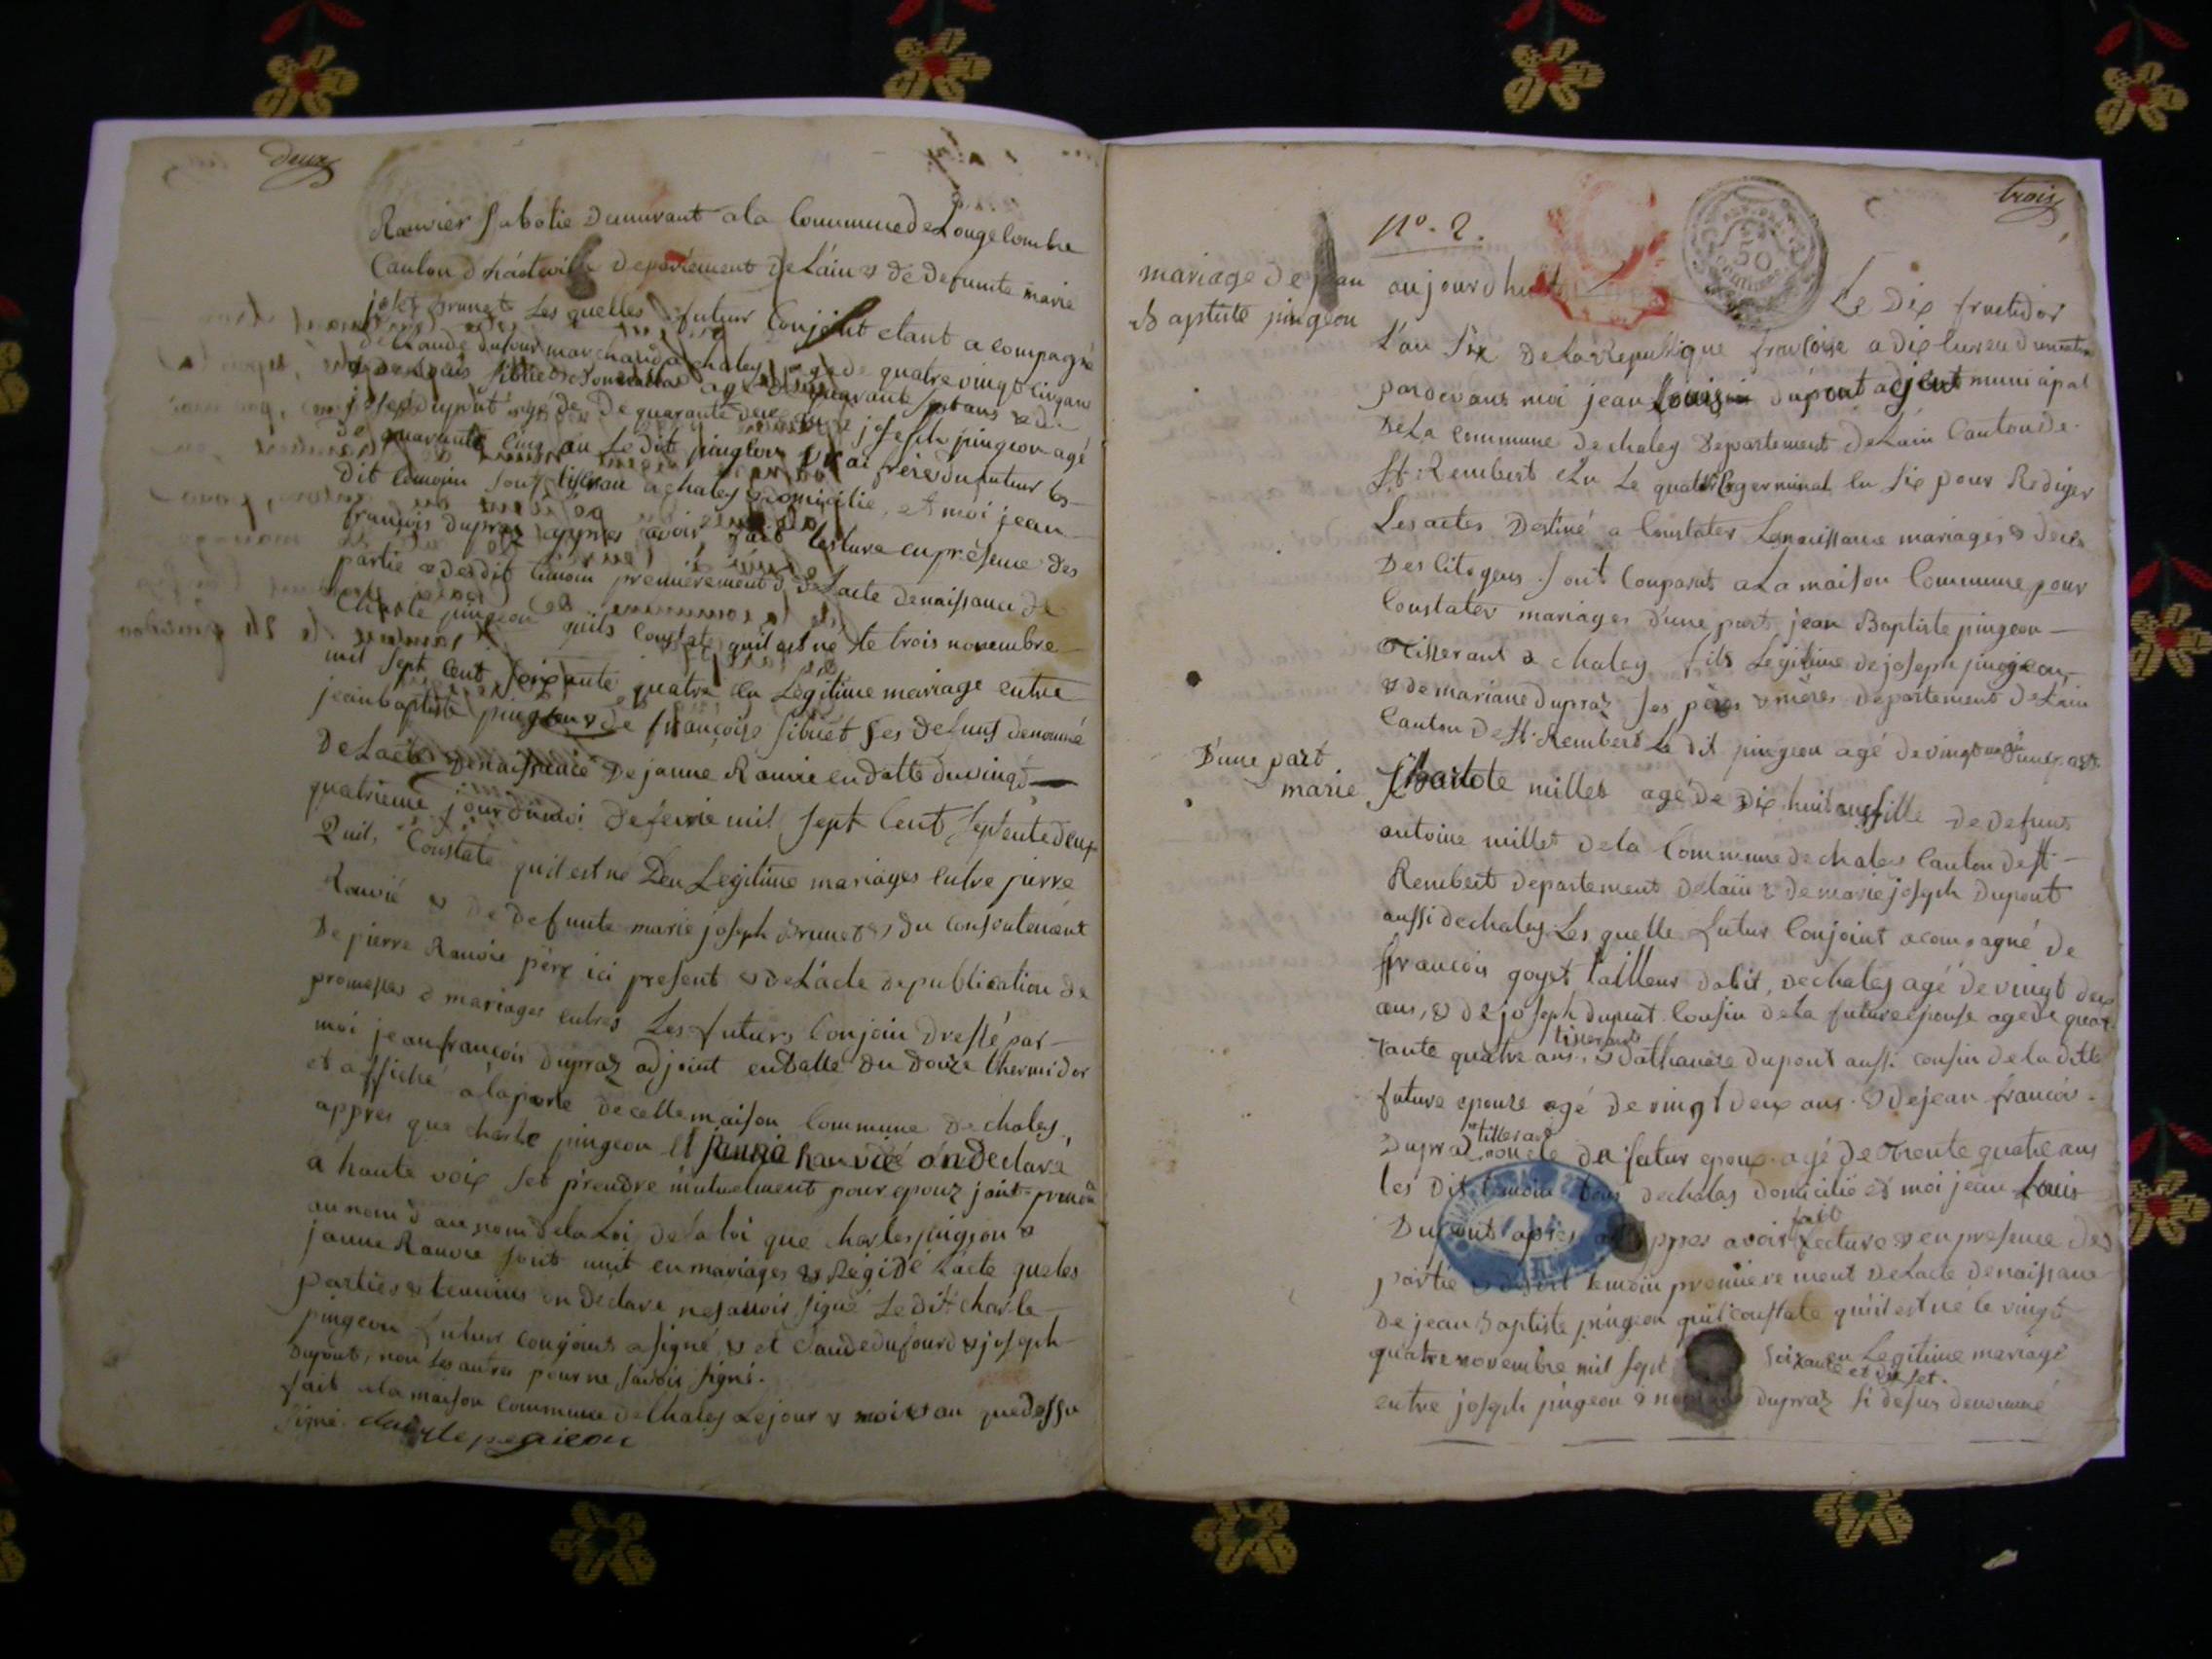 deux
Ranvier sabotie demurant a la Commune de Longecombe
Canton d'hauteville departement de Lain & de defunte marie
joset brunet Les quelles futeur Conjoint etant a compagné
de Claude dufour marchand a chaley agé de quatre vingt cinq ans
de Sibuet agé de quarante sept ans & de
josep dupont agé de De quarante deux ans & joseph pingeon agé
de quarante cinq an Le dit pingeon frère du futeur les
dit temoin sont tiseran a chaley domicilie, et moi jean
françois dupraz appres avoir fait lecture en présence des
partie & des dit temoin premièrement de Lacte de naissance de
Charle pingeon quils constate quil est né le trois novembre
mil sept cent soixante quatre en Légitime mariage entre
jean baptiste pingeon & de françoise sibuet ses defunt denommé
De Lacte de naissance De janne Ranvie en datte du vingt
quatrieme jour du moi de fevrie mil sept cent septente deux
Quil Constate quil est né Den Legitime mariages entre pierre
Ranvié & de defunte marie joseph brunet & du consentement
De pierre Ranvie père ici present & de L'acte de publication de
promesses d mariages entres Les futurs Conjoin dressé par
moi jean francois dupraz adjoint en datte du douze thermidor
et affiché a la porte de cette maison Commune de chaley,
appres que charle pingeon et janne Ranvié on declaré
a haute voix set prendre mutuelment pour epouz jait prononcé
au nom d au nom de la Loi de la loi que charles pingeon &
janne Ranvie sont unit en mariages & Régidé Lacte que les
parties & temoins on déclare ne savoir signé Le dit charle
pingeon futur conjoint a signé & et Claude dufour & joseph
Dupont, non les autres pour ne savoir signé.
fait a la maison commune de Chaley Le jour & moi & an que dessu
Signé. charle pegieon
trois
N°. 2.
mariage de jean
Baptiste pingeon
aujourdhuit
Le Dix fructidor
L'an Six De La Republique françoise a dix heures du matin
pardevant moi jean Louis dupont agent municipal
De La Commune de chaley Departement de Lain Canton de
St. Rembert elu Le quatre germinal en Six pour Rediger
Les actes Destiné a Constater Les naissance mariages & deces
Des Citoyens. Sont Comparut a La maison Commune pour
Constater mariages d'une part jean Baptiste pingeon
Tisserant a chaley fils Légitime de joseph pingeon
& de mariane dupraz ses pères & mères département de Lain
Canton de St. Rembert Le dit pingeon agé de vingt un an d'une part
D'une part
marie Charlote millet agé de Dix huit ans fille de defunt
antoine millet de la Commune de chaley Canton de St.
Rembert departement de lain & de marie joseph Dupont
aussi de chaley Les quelle futur Conjoint acompagné de
francois goyet tailleur dabit, de chaley agé de vingt deux
ans, & de joseph dupont Cousin de la future epouse age de quar
rante quatre ans, tisserant & dathanase dupont aussi cousin de la ditte
future epouse agé de vingt deux ans & de jean francois
Dupraz tisserant oncle du futur epoux agé de Trente quatre ans
les dit temoin tous de chaley domicilié et moi jean Louis
Dupont apres appres avoir fait Lecture & en presence des
partie & dudit temoin premiere ment de Lacte de naissance
De jean Baptiste pingeon quil constate quil est né le vingt
quatre novembre mil sept soixante et dix set. en Legitime mariage
entre joseph pingeon & dupraz si desus denommé
50